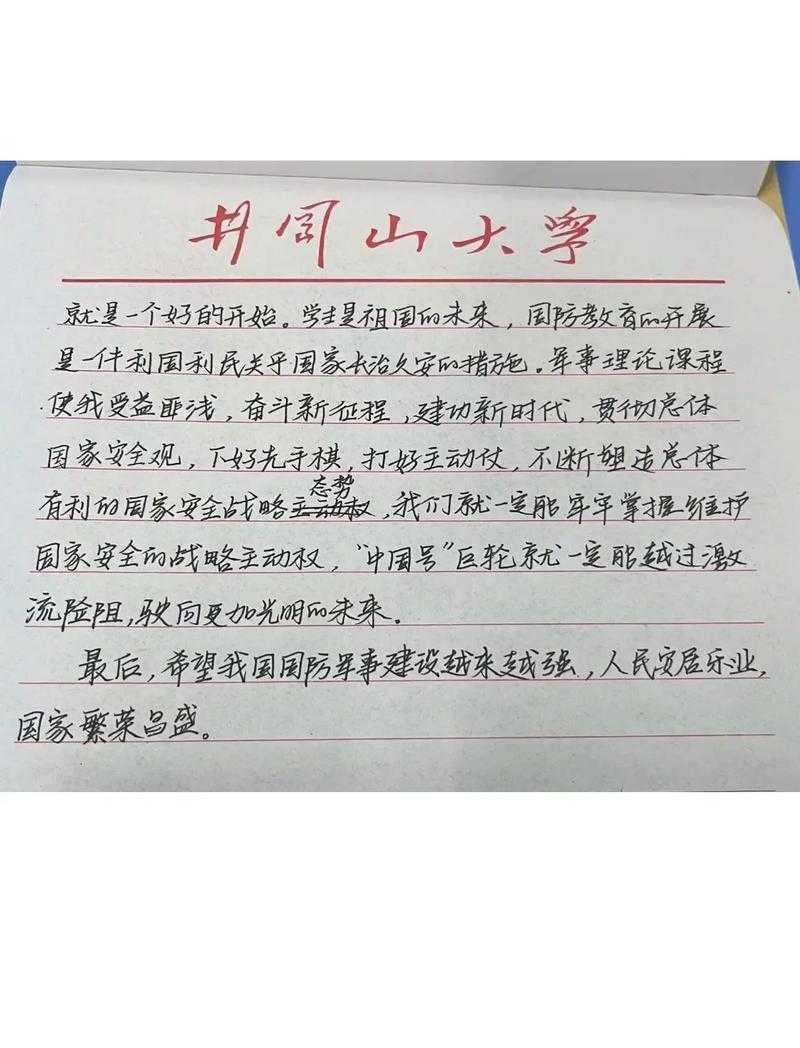 井冈山大学
就是一个好的开始。学生是祖国的未来，国防教育的开展
是一件利国利民关乎国家长治久安的措施。军事理论课程
使我受益匪浅，奋斗新征程，建功新时代，贯彻总体
国家安全观，下好先手棋，打好主动仗，不断塑造总体
态势
有利的国家安全战略主动权，我们就一定能牢牢掌握维护
国家安全的战略主动权，“中国号”巨轮就一定能越过激
流险阻，驶向更加光明的未来。
最后，希望我国国防军事建设越来越强，人民安居乐业，
国家繁荣昌盛。